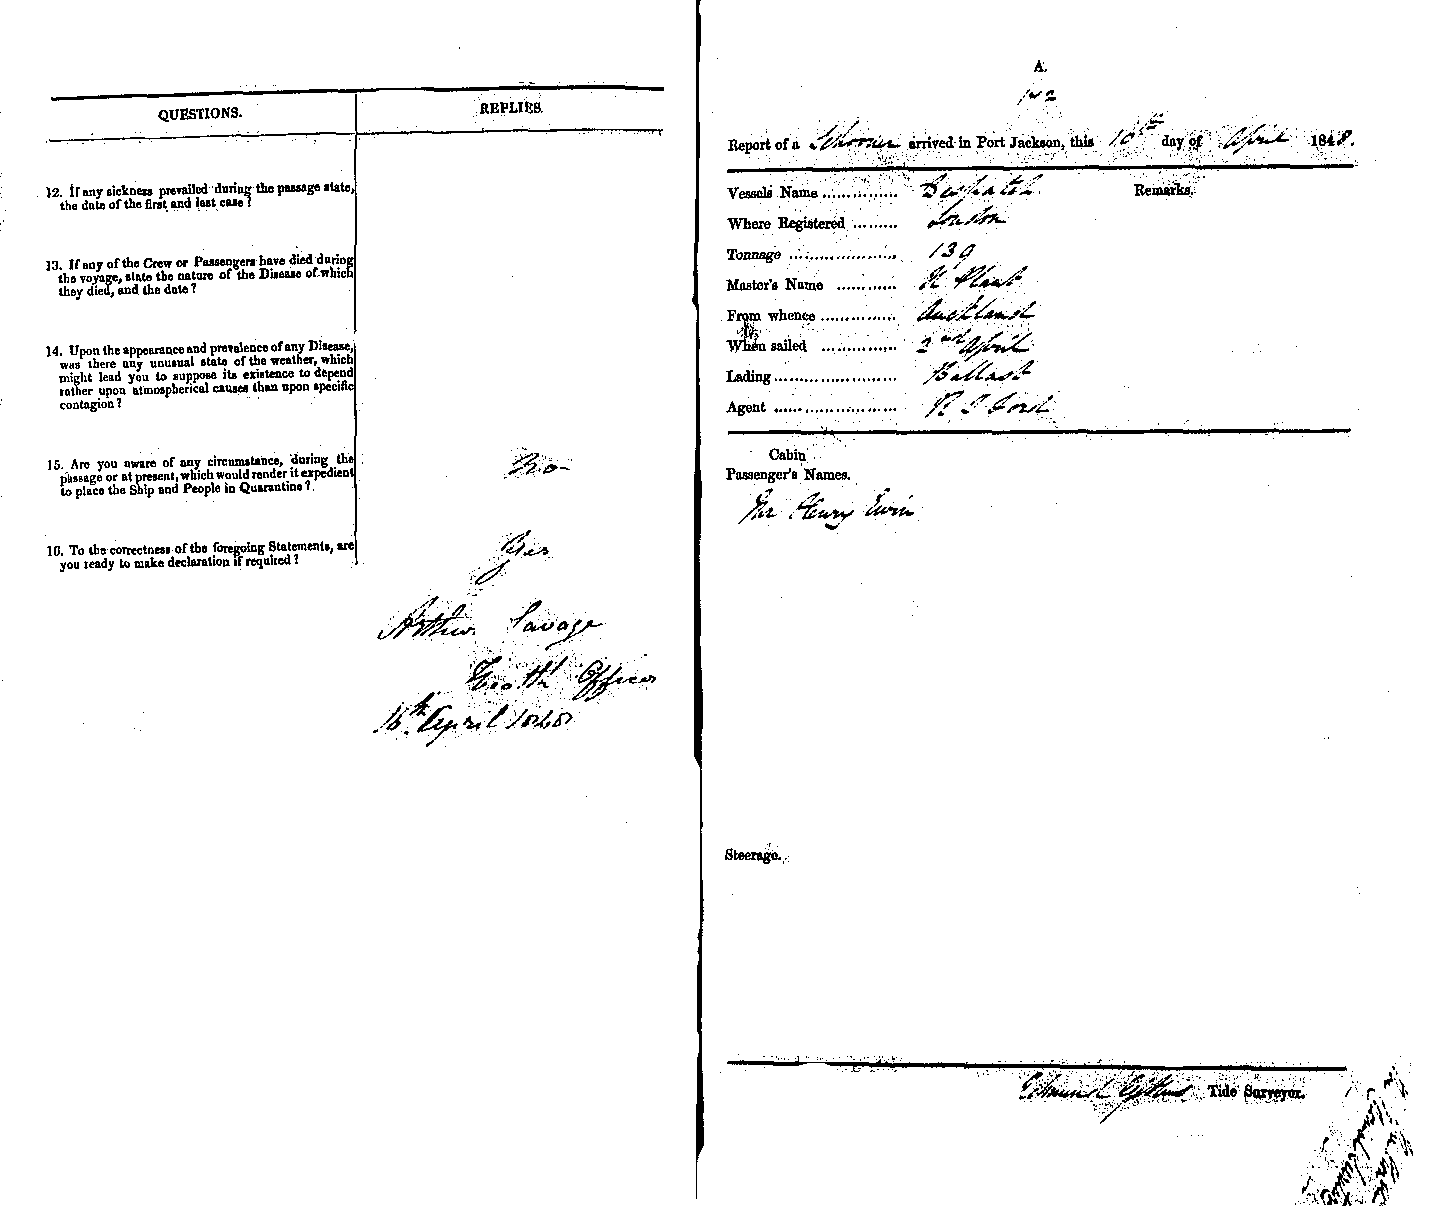 QUESTIONS.
REPLIES.
12. If any sickness prevailed during the passage state,
the date of the first and last case?
13. If any of the Crew or Passengers have died during
the voyage, state the nature of the Disease of which
they died, and the date?
14. Upon the appearance and prevalence of any Disease,
was there any unusual state of the weather, which
might lead you to suppose its existence to depend
rather upon atmospherical causes than upon specific
contagion?
15. Are you aware of any circumstance, during the
passage or at present, which would render it expedient
to place the Ship and People in Quarantine?
No-
16. To the correctness of the foregoing Statements, are
you ready to make declaration if required?
Yes
Arthur Savage
Health Officer
16th April 1848
A.
Report of a Schooner arrived in Port Jackson, this 16th day of April 1848.
Vessels Name ............... Despatch
Remarks.
Where Registered ......... London
Tonnage .................... 139
Master's Name ............ Plant
From whence ............... Auckland
When sailed ............... 2nd April
Lading ........................ Ballast
Agent ........................ Ford
Cabin
Passenger's Names.
Mr Henry Ewin
Steerage.
Tide Surveyor.